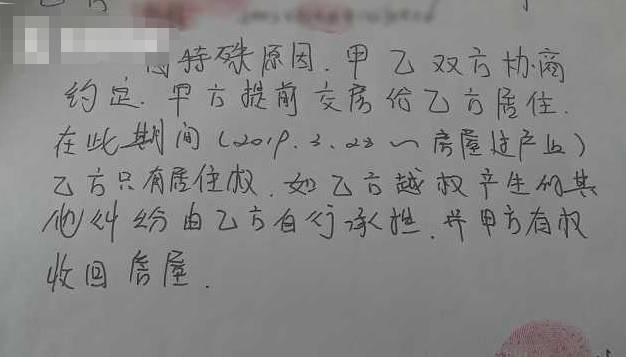 因特殊原因.甲乙双方协商
约定.甲方提前交房给乙方居住.
在此期间(2019.3.28~房屋过户止)
乙方只有居住权.如乙方越权产生的其
他纠纷由乙方自行承担.并甲方有权
收回房屋.